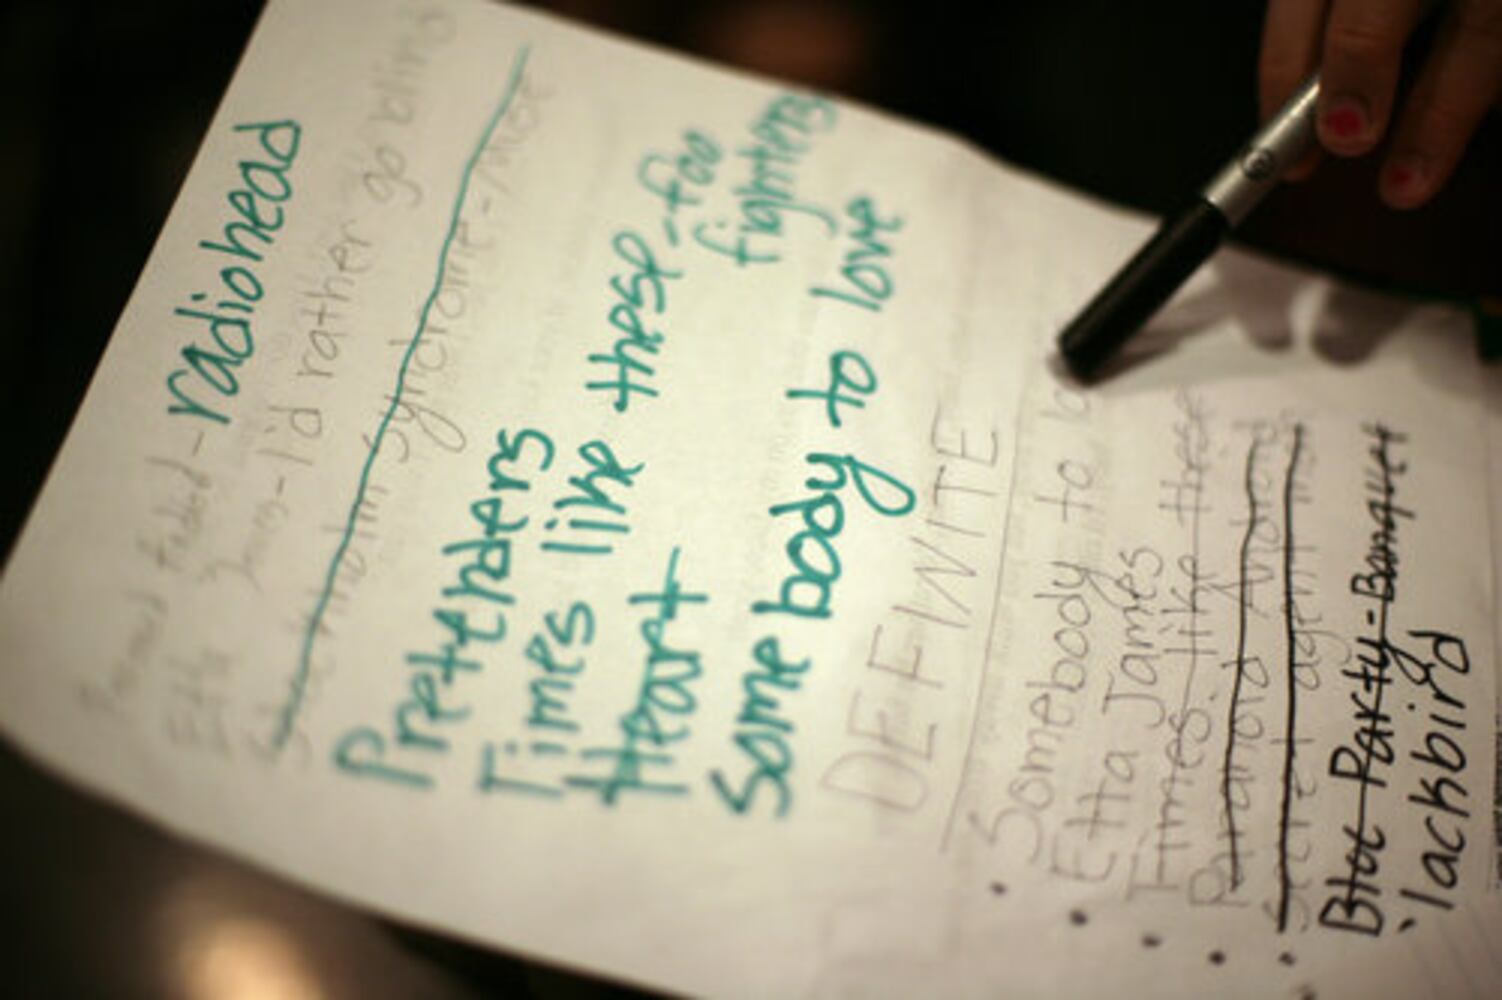 -radiohead
Etta James-I'd rather go blind
syndrome-
Pretenders
Times like these-foo fighters
Heart
Somebody to love
DEFINITE
Somebody to
Etta James
Times like these
Paranoid Android
Secret agent
Bloc Party-Banquet
lackbird